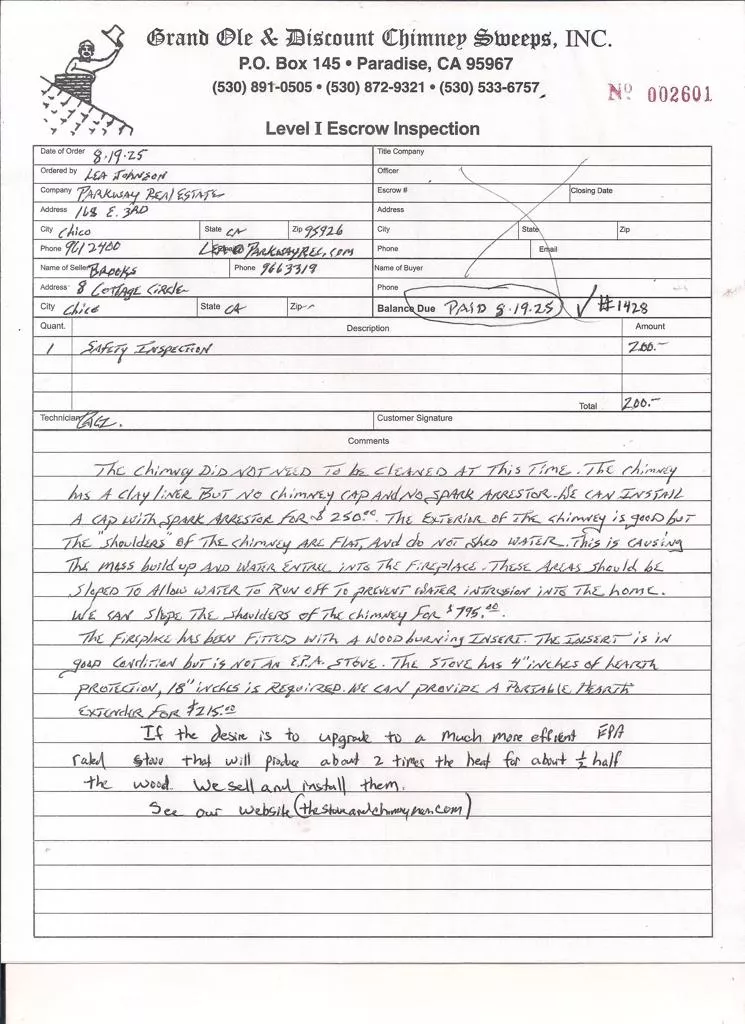 Grand Ole & Discount Chimney Sweeps, INC.
P.O. Box 145 • Paradise, CA 95967
(530) 891-0505 • (530) 872-9321 • (530) 533-6757
Nº 002601
Level I Escrow Inspection
Date of Order 8.19.25
Title Company
Ordered by LEA JOHNSON
Officer
Company PARKWAY REAL ESTATE
Escrow # Closing Date
Address 168 E. 3RD
Address
City Chico State CA Zip 95926
City State Zip
Phone 9612400 LEA@PARKWAYREL.COM
Phone Email
Name of Seller BROOKS Phone 9663319
Name of Buyer
Address 8 COTTAGE CIRCLE
Phone
City Chico State CA Zip
Balance Due PAID 8.19.25 ✓ #1428
Quant. Description Amount
1 SAFETY INSPECTION 200.-
Total 200.-
Technician
Customer Signature
Comments
THE CHIMNEY DID NOT NEED TO BE CLEANED AT THIS TIME. THE CHIMNEY
HAS A CLAY LINER BUT NO CHIMNEY CAP AND NO SPARK ARRESTOR. WE CAN INSTALL
A CAP WITH SPARK ARRESTOR FOR $250.00. THE EXTERIOR OF THE CHIMNEY IS GOOD BUT
THE "SHOULDERS" OF THE CHIMNEY ARE FLAT, AND DO NOT SHED WATER. THIS IS CAUSING
THE MASS BUILD UP AND WATER ENTREE INTO THE FIREPLACE. THESE AREAS SHOULD BE
SLOPED TO ALLOW WATER TO RUN OFF TO PREVENT WATER INTRUSION INTO THE HOME.
WE CAN SLOPE THE SHOULDERS OF THE CHIMNEY FOR $795.00.
THE FIREPLACE HAS BEEN FITTED WITH A WOOD BURNING INSERT. THE INSERT IS IN
GOOD CONDITION BUT IS NOT AN E.P.A. STOVE. THE STOVE HAS 4" INCHES OF HEARTH
PROTECTION, 18" INCHES IS REQUIRED. WE CAN PROVIDE A PORTABLE HEARTH
EXTENDER FOR $215.00
If the desire is to upgrade to a much more efficent EPA
rated stove that will produce about 2 times the heat for about ½ half
the wood. We sell and install them.
See our website (thestoveandchimneyman.com)